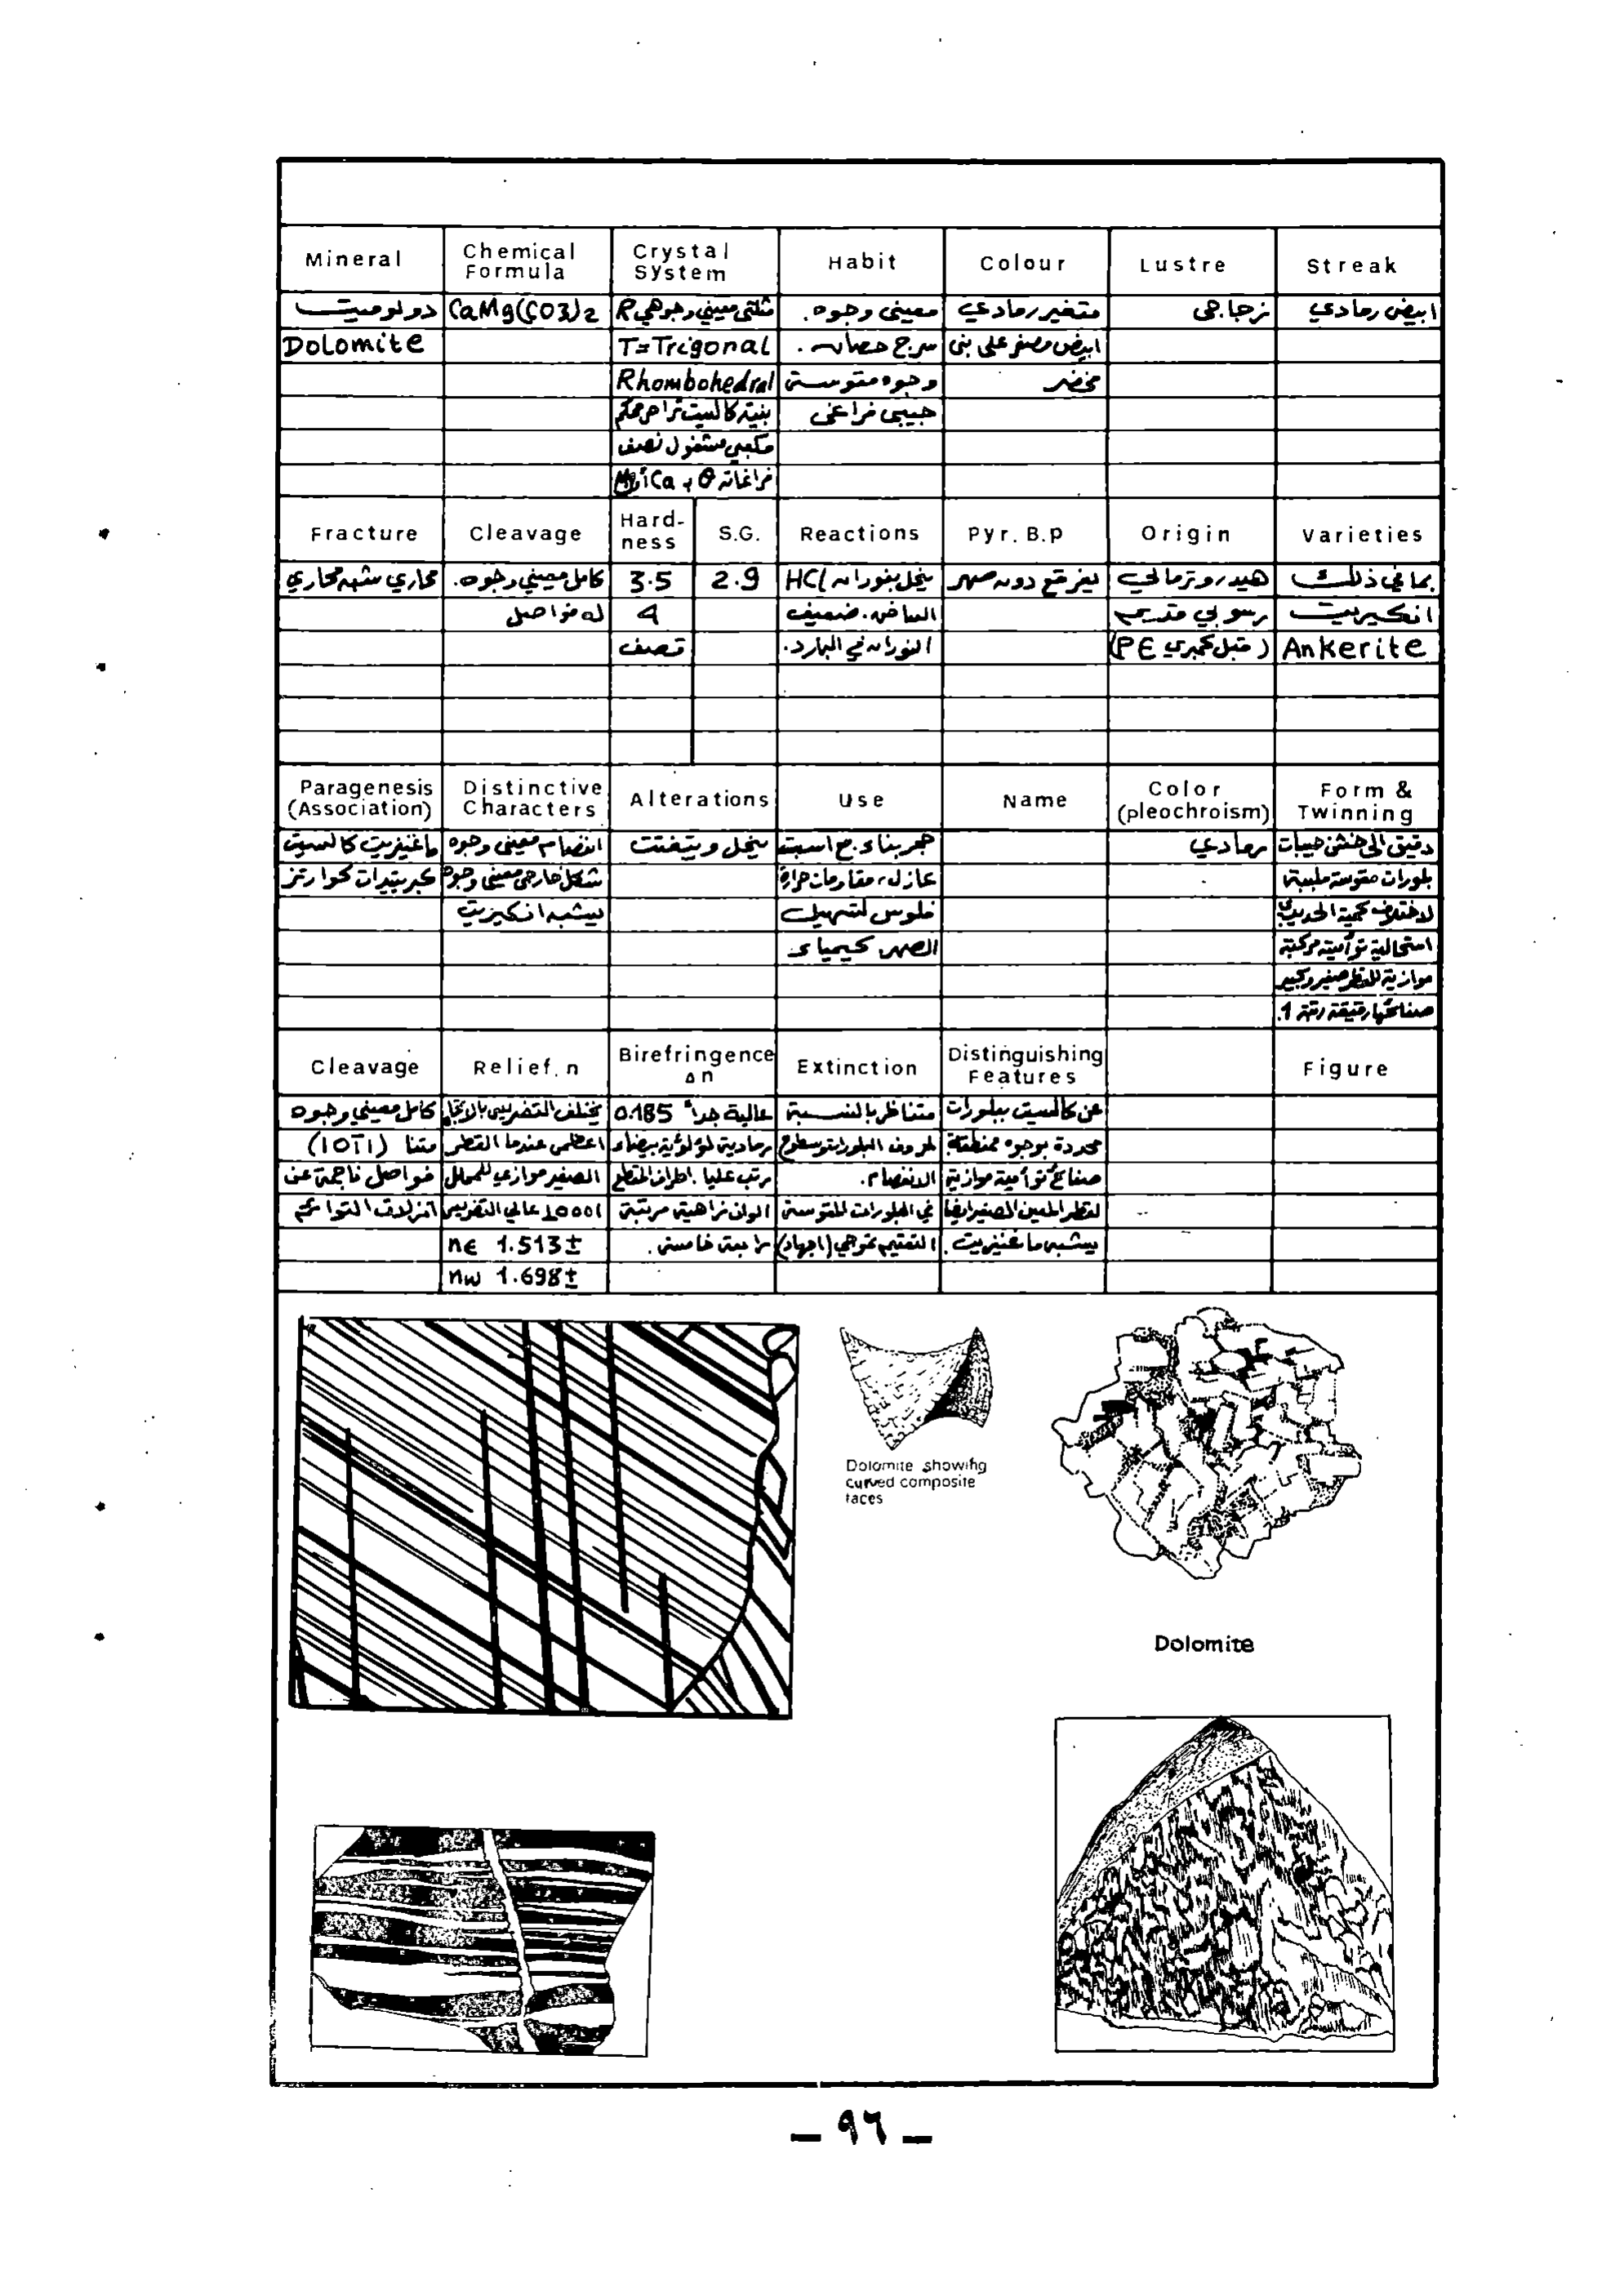 Mineral Chemical Formula Crystal System Habit Colour Lustre Streak
دولوميت CaMg(CO3)2 ثلثي معيني وجوهي R معيني وجوه. متغير رمادي زجاجي ابيض رمادي
Dolomite T=Trigonal سرج حصان. ابيض مصفر على بني
Rhombohedral وجوه مقوسة مخضر
بنية كالسيت تراص محكم حبيبي فراغي
مكعبي مشغول نصف
فراغات Ca
Fracture Cleavage Hard-ness S.G. Reactions Pyr. B.p Origin Varieties
محاري شبه محاري كامل معيني وجوه. 3.5 2.9 ينحل بفوران HCl يفرقع دون صهر هيدروترمالي بما في ذلك
له فواصل 4 الساخن. ضعيف رسوبي قديم انكيريت
قصف الفوران في البارد. (قبل كمبري PE) Ankerite
Paragenesis (Association) Distinctive Characters Alterations Use Name Color (pleochroism) Form & Twinning
ماغنيزيت كالسيت انفصام معيني وجوه ينحل ويتفتت حجر بناء. رمادي دقيق الى خشن حبيبات
كبريتيدات كوارتز شكل خارجي معيني وجوه عازل، مقاومات حرارة بلورات مقوسة
يشبه انكيريت فلوس لتسهيل لاختلاف كمية الحديد
الصهر. كيمياء استحالية توأمية مركبة
موازية للقطر صغير وكبير
صفائحها رقيقة رتبة 1.
Cleavage Relief. n Birefringence Δn Extinction Distinguishing Features Figure
كامل معيني وجوه يختلف التضريس بالاتجاه عالية جداً 0.185 متناظر بالنسبة عن كالسيت ببلورات
متنا (1011) اعظمي عندما القطر رمادية لؤلؤية بيضاء لحروف البلورات وسطوح محددة بوجوه ممنطقة
فواصل ناجمة عن الصغير موازي للمحلل رتب عليا. اطراف المقطع الانفصام. صفائح توأمية موازية
انزلاق التوائم عالي التضريس الوان زاهية مرتبة في البلورات المقوسة لقطر المعين الصغير ايضا
nε 1.513± رابعة خامسة. التعتيم تموجي (اجهاد) يشبه ماغنيزيت.
nω 1.698±
Dolomite showing
curved composite
faces
Dolomite
– ٩٦ –